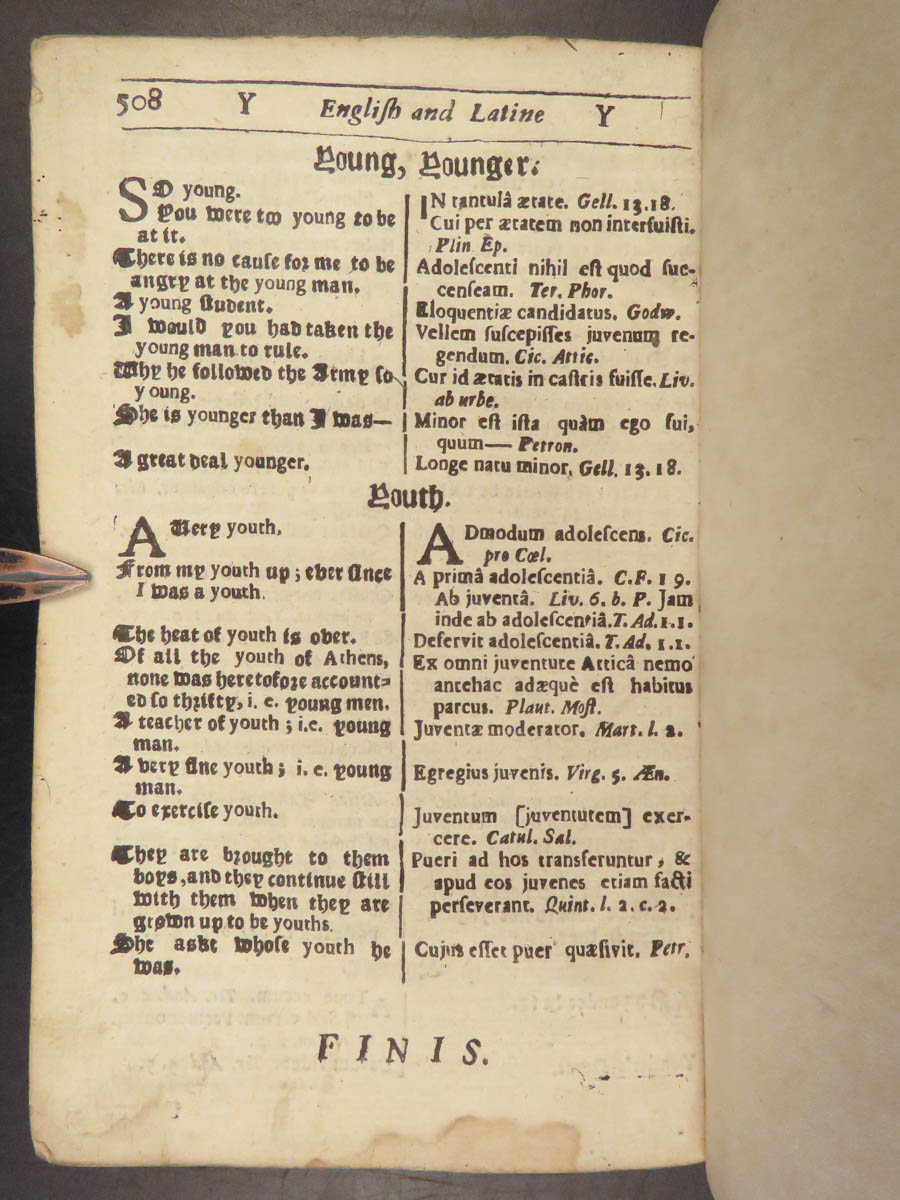 508 Y Engliſh and Latine Y
Young, Younger.
SO young.
You were too young to be
at it.
There is no cauſe for me to be
angry at the young man.
A young ſtudent.
I would you had taken the
young man to rule.
Why he followed the Army ſo
young.
She is younger than I was—
A great deal younger.
IN tantulâ ætate. Gell. 13.18.
Cui per ætatem non interfuiſti.
Plin Ep.
Adoleſcenti nihil eſt quod ſuc-
cenſeam. Ter. Phor.
Eloquentiæ candidatus. Godw.
Vellem ſuſcepiſſes juvenum re-
gendum. Cic. Attic.
Cur id ætatis in caſtris fuiſſe. Liv.
ab urbe.
Minor eſt iſta quàm ego fui,
quum— Petron.
Longe natu minor. Gell. 13.18.
Youth.
A Very youth.
From my youth up; ever ſince
I was a youth.
The heat of youth is over.
Of all the youth of Athens,
none was heretofore account-
ed ſo thrifty, i. e. young men.
A teacher of youth; i.e. young
man.
A very fine youth; i. e. young
man.
To exerciſe youth.
They are brought to them
boys, and they continue ſtill
with them when they are
grown up to be youths.
She askt whoſe youth he
was.
ADmodum adoleſcens. Cic.
pro Cœl.
A primâ adoleſcentiâ. C.F. 1 9.
Ab juventâ. Liv. 6. b. P. Jam
inde ab adoleſcentiâ. T. Ad. 1.1.
Defervit adoleſcentiâ. T. Ad. 1.1.
Ex omni juventute Atticâ nemo
antehac adæquè eſt habitus
parcus. Plaut. Moſt.
Juventæ moderator. Mart. l. 2.
Egregius juvenis. Virg. 5. Æn.
Juventum [juventutem] exer-
cere. Catul. Sal.
Pueri ad hos transferuntur, &
apud eos juvenes etiam facti
perſeverant. Quint. l. 2. c. 2.
Cujus eſſet puer quæſivit. Petr.
FINIS.